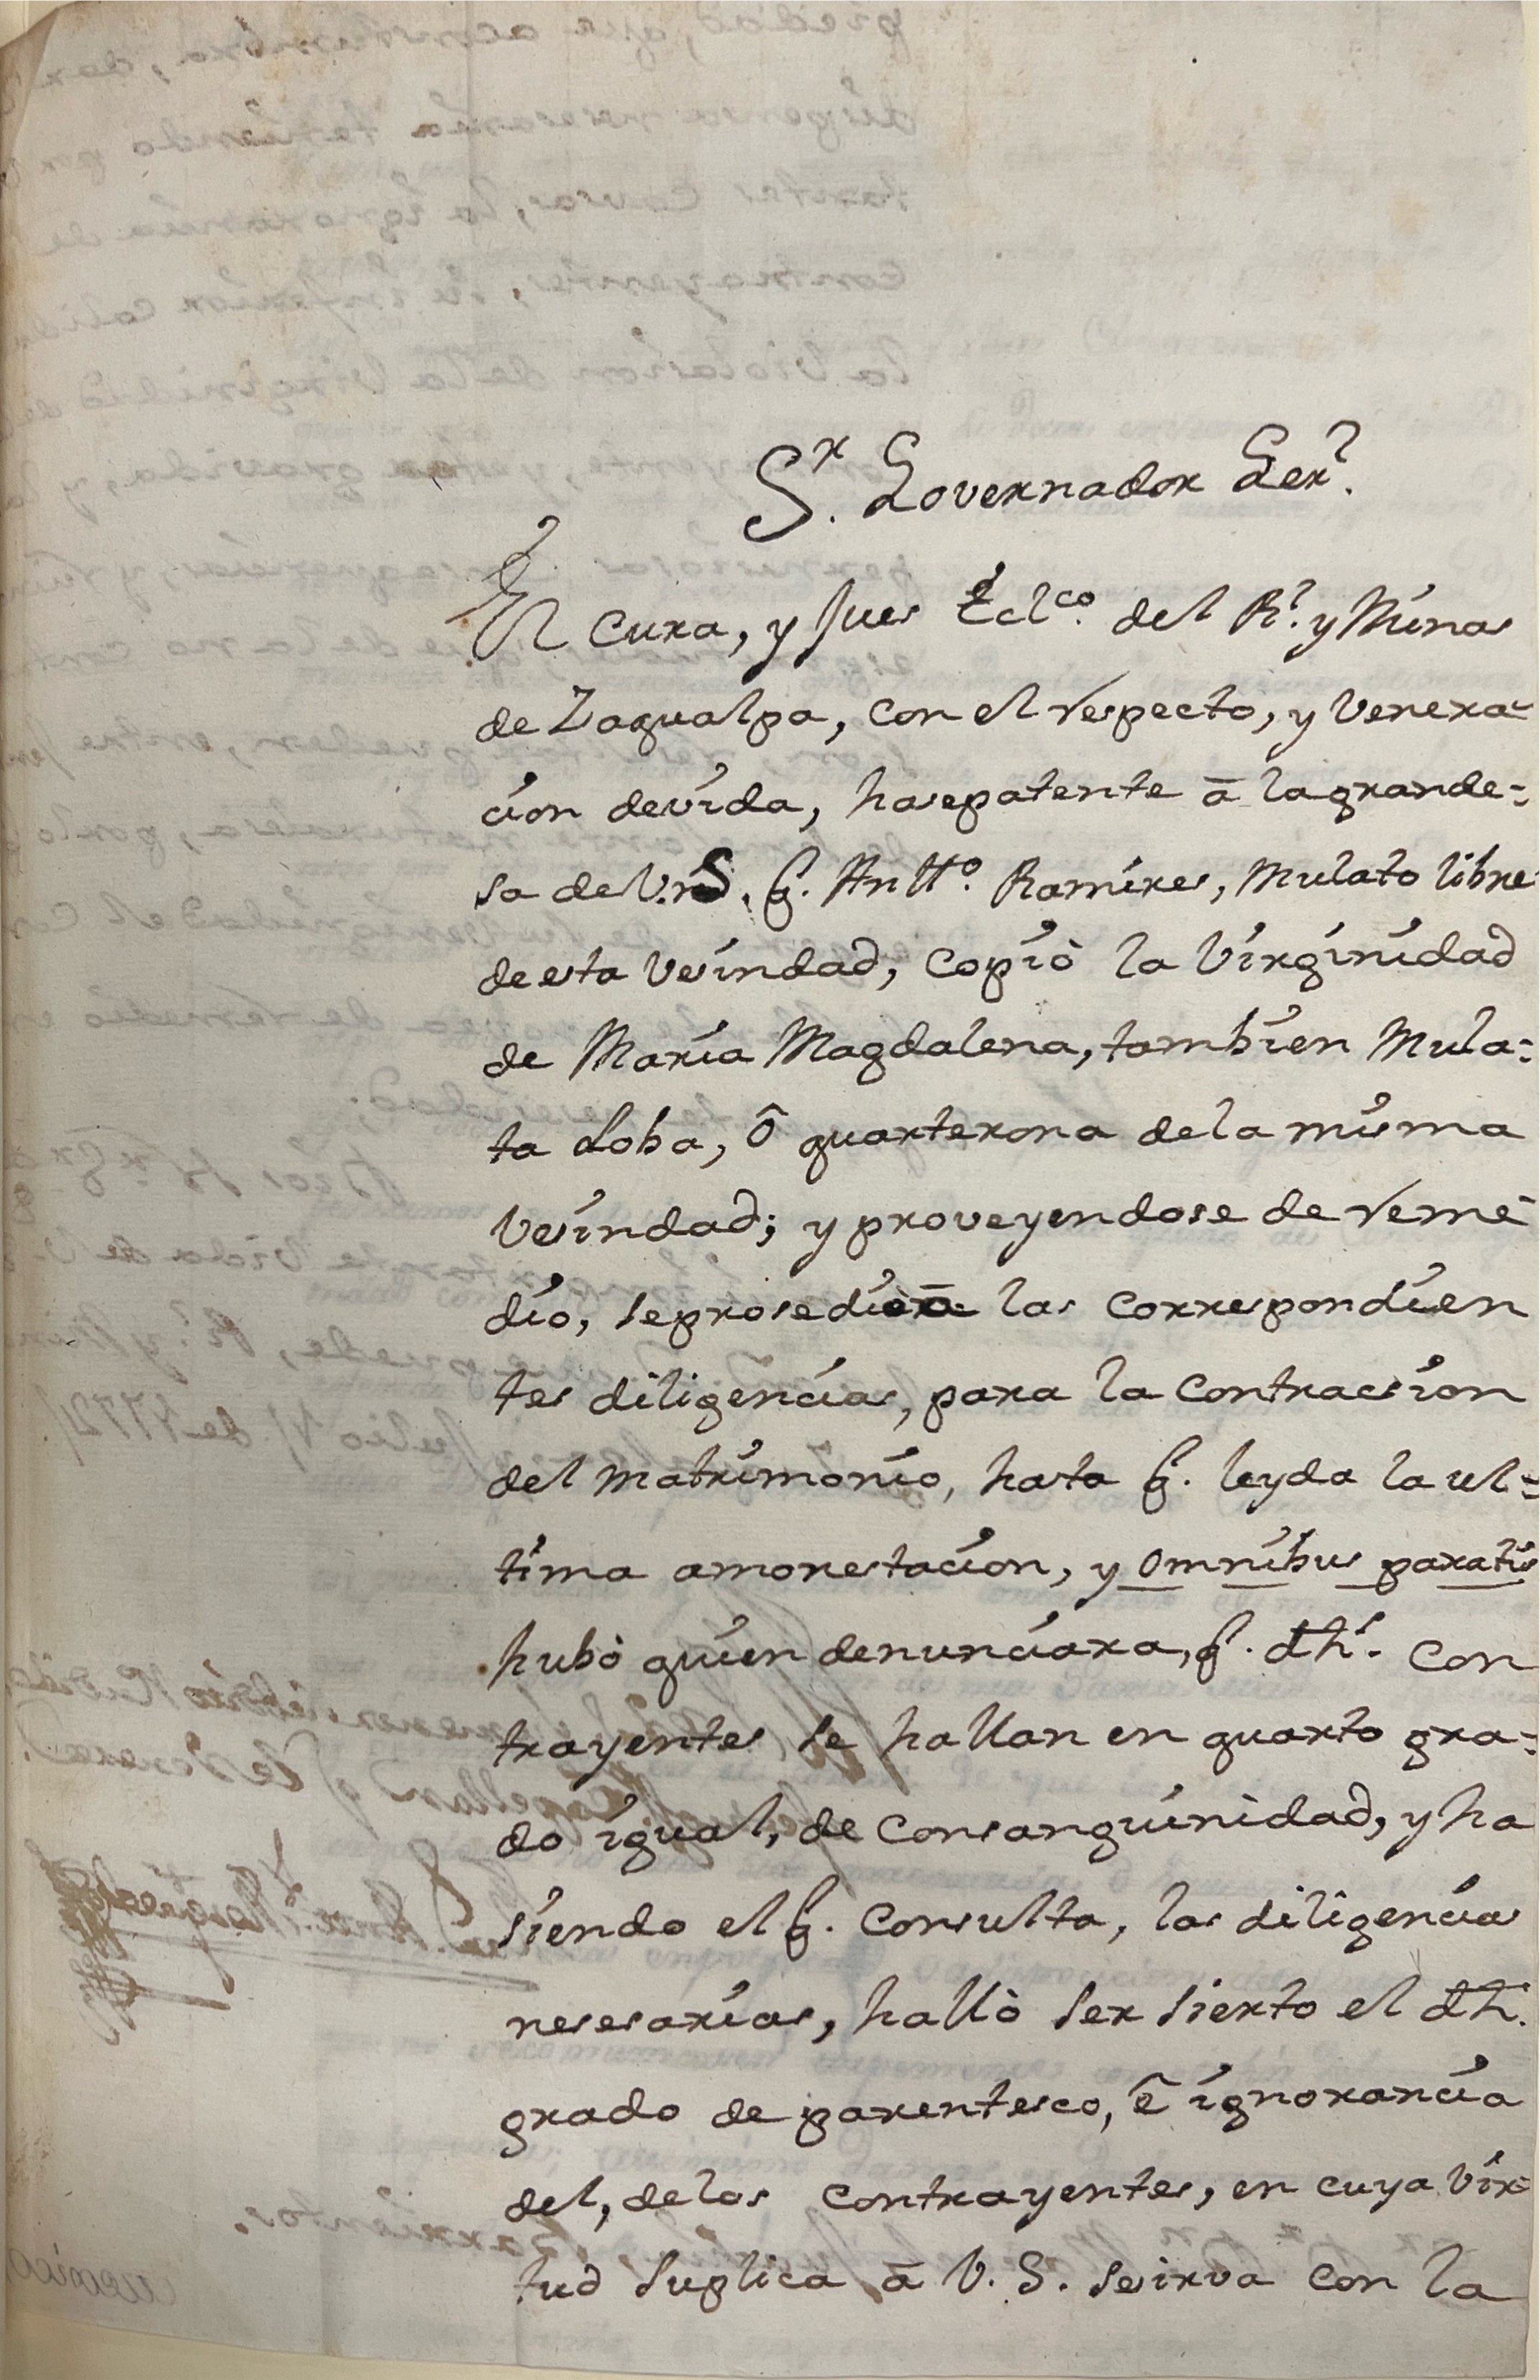 Sr. Governador Genl.
El Cura, y Jues Eclco. del Rl. y Minas
de Zagualpa, con el respecto, y Venera=
cion devida, hase patente â la grande=
sa de V.S. q. Antto. Ramires, Mulato libre
de esta Vesindad, copiò la Virginidad
de Maria Magdalena, tambien Mula=
ta Loba, ô quarterona de la misma
Vesindad; y proveyendose de reme=
dio, se prosedio â las correspondien
tes diligencias, para la contracsion
del matrimonio, hasta q. leyda la ul=
tima amonestacion, y omnibus paratis
hubò quien denunciara, q. dhs. con
trayentes se hallan en quarto gra=
do igual, de consanguinidad, y ha
siendo el q. consulta, las diligencias
nesesarias, hallò ser sierto el dh.
grado de parentesco, ê ignorancia
del, de los contrayentes, en cuya vir=
tud suplica â V. S. se sirva con la